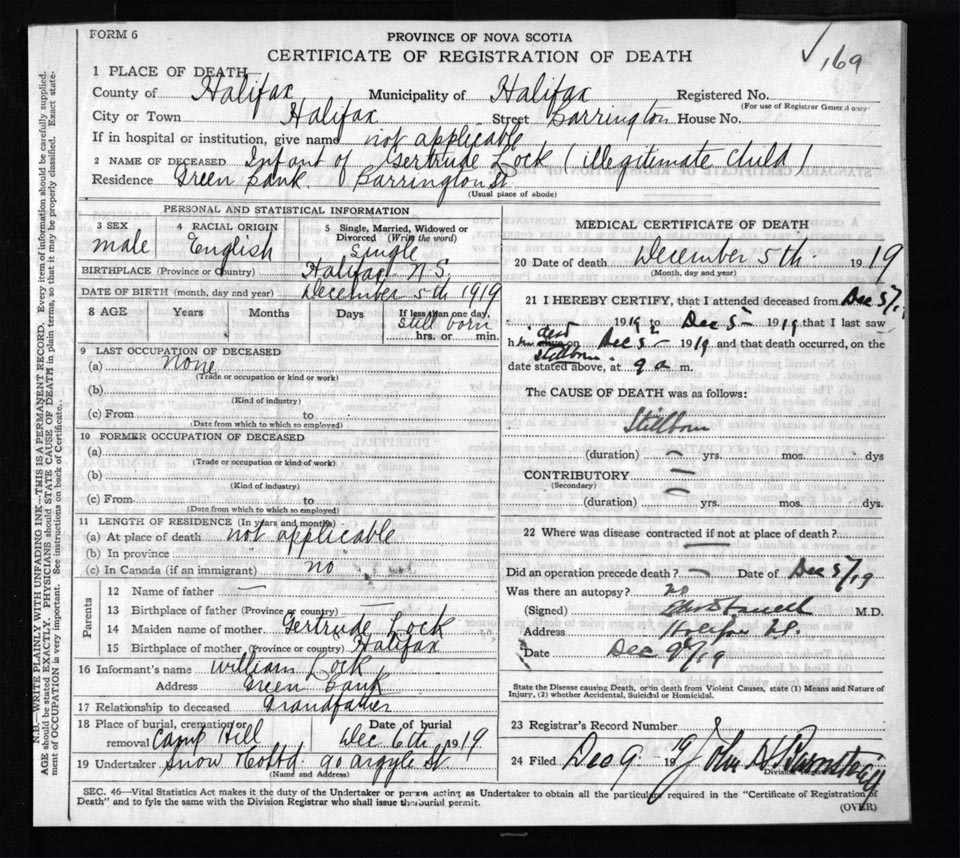 FORM 6
PROVINCE OF NOVA SCOTIA
CERTIFICATE OF REGISTRATION OF DEATH
✓ 169
1 PLACE OF DEATH
County of Halifax Municipality of Halifax Registered No.
(For use of Registrar General only)
City or Town Halifax Street Barrington House No.
If in hospital or institution, give name not applicable
2 NAME OF DECEASED Infant of Gertrude Lock (illegitimate child)
Residence Green Bank. Barrington St
(Usual place of abode)
PERSONAL AND STATISTICAL INFORMATION
3 SEX male 4 RACIAL ORIGIN English 5 Single, Married, Widowed or Divorced (Write the word) Single
BIRTHPLACE (Province or Country) Halifax N.S.
DATE OF BIRTH (month, day and year) December 5th 1919
8 AGE Years Months Days If less than one day, Still born hrs. or min.
9 LAST OCCUPATION OF DECEASED
(a) none
(Trade or occupation or kind or work)
(b)
(Kind of industry)
(c) From to
(Date from which to which so employed)
10 FORMER OCCUPATION OF DECEASED
(a)
(Trade or occupation or kind of work)
(b)
(Kind of industry)
(c) From to
(Date from which to which so employed)
11 LENGTH OF RESIDENCE (In years and months)
(a) At place of death not applicable
(b) In province
(c) In Canada (if an immigrant) no
Parents
12 Name of father —
13 Birthplace of father (Province or country) —
14 Maiden name of mother Gertrude Lock
15 Birthplace of mother (Province or country) Halifax
16 Informant's name William Lock
Address Green Bank
17 Relationship to deceased Grandfather
18 Place of burial, cremation or removal Camp Hill Date of burial Dec 6th 1919
19 Undertaker Snow & Co Ltd 90 Argyle St
(Name and Address)
MEDICAL CERTIFICATE OF DEATH
20 Date of death December 5th 1919
(Month, day and year)
21 I HEREBY CERTIFY, that I attended deceased from Dec 5/19
1919 to Dec 5 — 1919 that I last saw
him dead stillborn on Dec 5 — 1919 and that death occurred, on the
date stated above, at 9 a m.
The CAUSE OF DEATH was as follows:
Stillborn
(duration) — yrs. mos. dys
CONTRIBUTORY —
(Secondary)
(duration) — yrs. mos. dys.
22 Where was disease contracted if not at place of death?
Did an operation precede death? — Date of Dec 5/19
Was there an autopsy? no
(Signed) M.D.
Address Halifax N.S.
Date Dec 9/19
State the Disease causing Death, or in death from Violent Causes, state (1) Means and Nature of
Injury, (2) whether Accidental, Suicidal or Homicidal.
23 Registrar's Record Number 8
24 Filed Dec 9 1919 John
Division Registrar
SEC. 46—Vital Statistics Act makes it the duty of the Undertaker or person acting as Undertaker to obtain all the particulars required in the "Certificate of Registration of
Death" and to fyle the same with the Division Registrar who shall issue the burial permit.
(OVER)
N.B.—WRITE PLAINLY WITH UNFADING INK—THIS IS A PERMANENT RECORD. Every item of information should be carefully supplied.
AGE should be stated EXACTLY. PHYSICIANS should STATE CAUSE OF DEATH in plain terms, so that it may be properly classified. Exact state-
ment of OCCUPATION is very important. See instructions on back of Certificate.